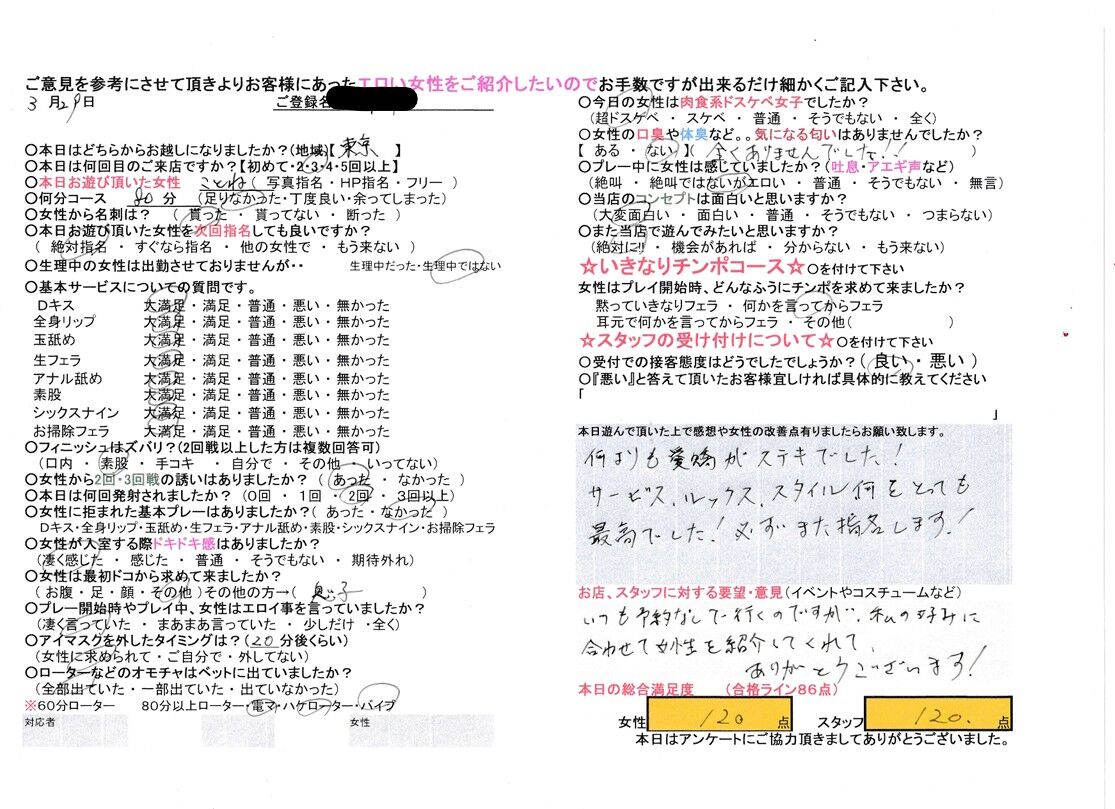 ご意見を参考にさせて頂きよりお客様にあったエロい女性をご紹介したいのでお手数ですが出来るだけ細かくご記入下さい。
3月29日
ご登録名
〇本日はどちらからお越しになりましたか?(地域)【 東京 】
〇本日は何回目のご来店ですか?【初めて・2・3・4・5回以上】
〇本日お遊び頂いた女性 ことね( 写真指名・HP指名・フリー )
〇何分コース 80分 (足りなかった・丁度良い・余ってしまった)
〇女性から名刺は? ( 貰った ・ 貰ってない ・ 断った )
〇本日お遊び頂いた女性を次回指名しても良いですか?
( 絶対指名 ・ すぐなら指名 ・ 他の女性で ・ もう来ない )
〇生理中の女性は出勤させておりませんが・・ 生理中だった・生理中ではない
〇基本サービスについての質問です。
Dキス 大満足・満足・普通・悪い・無かった
全身リップ 大満足・満足・普通・悪い・無かった
玉舐め 大満足・満足・普通・悪い・無かった
生フェラ 大満足・満足・普通・悪い・無かった
アナル舐め 大満足・満足・普通・悪い・無かった
素股 大満足・満足・普通・悪い・無かった
シックスナイン 大満足・満足・普通・悪い・無かった
お掃除フェラ 大満足・満足・普通・悪い・無かった
〇フィニッシュはズバリ?(2回戦以上した方は複数回答可)
(口内 ・ 素股 ・ 手コキ ・ 自分で ・ その他 いってない)
〇女性から2回・3回戦の誘いはありましたか? ( あった ・ なかった )
〇本日は何回発射されましたか? (0回 ・ 1回 ・ 2回 ・ 3回以上)
〇女性に拒まれた基本プレーはありましたか? ( あった・なかった )
Dキス・全身リップ・玉舐め・生フェラ・アナル舐め・素股・シックスナイン・お掃除フェラ
〇女性が入室する際ドキドキ感はありましたか?
(凄く感じた ・ 感じた ・ 普通 ・ そうでもない ・ 期待外れ)
〇女性は最初ドコから求めて来ましたか?
( お腹・足・顔・その他 )その他の方→( 息子 )
〇プレー開始時やプレイ中、女性はエロイ事を言っていましたか?
(凄く言っていた ・ まあまあ言っていた ・ 少しだけ ・全く)
〇アイマスクを外したタイミングは? (20分後くらい)
(女性に求められて・ご自分で・外してない)
〇ローターなどのオモチャはベットに出ていましたか?
(全部出ていた・一部出ていた・出ていなかった)
※60分ローター 80分以上ローター・電マ・ハケローター・バイブ
対応者 女性
〇今日の女性は肉食系ドスケベ女子でしたか?
(超ドスケベ ・ スケベ ・ 普通 ・ そうでもない ・ 全く)
〇女性の口臭や体臭など。。気になる匂いはありませんでしたか?
【 ある ・ ない 】( 全くありませんでした!! )
〇プレー中に女性は感じていましたか?(吐息・アエギ声など)
(絶叫 ・ 絶叫ではないがエロい ・ 普通 ・ そうでもない ・ 無言)
〇当店のコンセプトは面白いと思いますか?
(大変面白い ・ 面白い ・ 普通 ・ そうでもない ・ つまらない)
〇また当店で遊んでみたいと思いますか?
(絶対に!! ・ 機会があれば ・ 分からない ・ もう来ない)
☆いきなりチンポコース☆〇を付けて下さい
女性はプレイ開始時、どんなふうにチンポを求めて来ましたか?
黙っていきなりフェラ ・ 何かを言ってからフェラ
耳元で何かを言ってからフェラ ・ その他( )
☆スタッフの受け付けについて☆〇を付けて下さい
〇受付での接客態度はどうでしたでしょうか?( 良い・悪い )
〇『悪い』と答えて頂いたお客様宜しければ具体的に教えてください
「
」
本日遊んで頂いた上で感想や女性の改善点有りましたらお願い致します。
何よりも愛嬌がステキでした!
サービス、ルックス、スタイル何をとっても
最高でした!必ずまた指名します!
お店、スタッフに対する要望・意見(イベントやコスチュームなど)
いつも予約なしで行くのですが、私の好みに
合わせて女性を紹介してくれて、
ありがとうございます!
本日の総合満足度 (合格ライン86点)
女性 120 点 スタッフ 120. 点
本日はアンケートにご協力頂きましてありがとうございました。